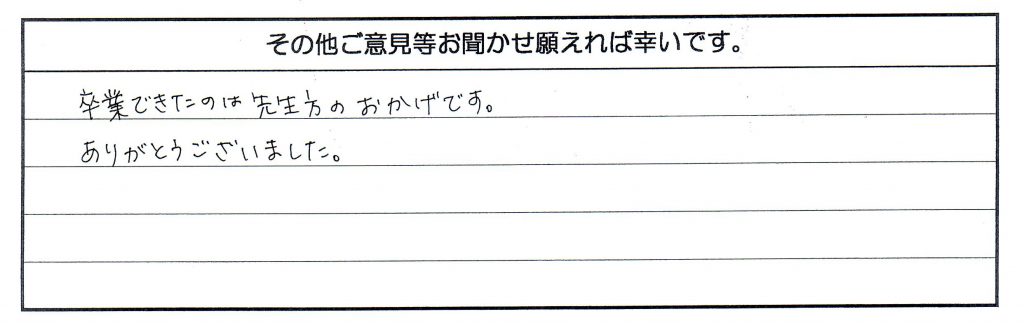 その他ご意見等お聞かせ願えれば幸いです。
卒業できたのは先生方のおかげです。
ありがとうございました。